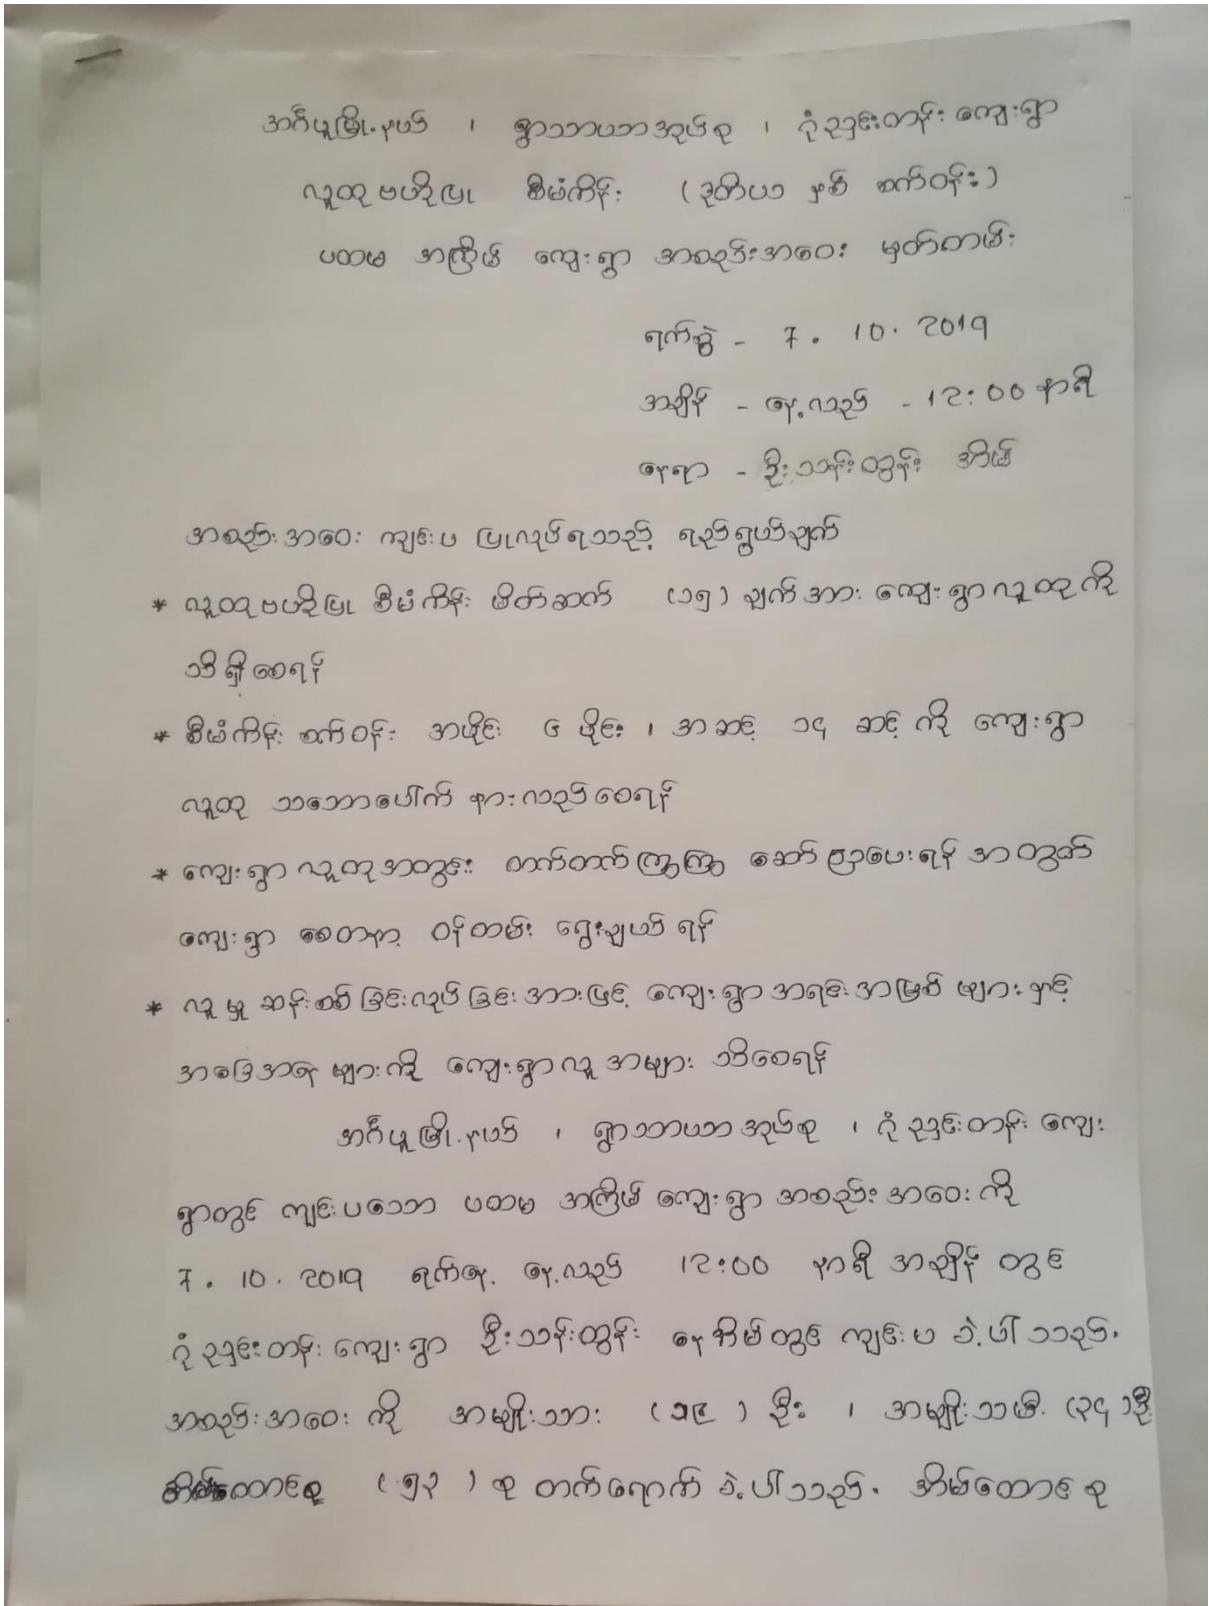 အင်္ဂပူမြို့နယ် ၊ ရွာသာယာအုပ်စု ၊ ဂုံညှင်းတန်း ကျေးရွာ
လူထုဗဟိုပြု စီမံကိန်း (ဒုတိယ နှစ် စက်ဝန်း)
ပထမ အကြိမ် ကျေးရွာ အစည်းအဝေး မှတ်တမ်း
ရက်စွဲ - 7. 10. 2019
အချိန် - နေ့လည် - 12:00 နာရီ
နေရာ - ဦးသန်းထွန်း အိမ်
အစည်းအဝေး ကျင်းပ ပြုလုပ်ရသည့် ရည်ရွယ်ချက်
* လူထုဗဟိုပြု စီမံကိန်း မိတ်ဆက် (၁၅) ချက်အား ကျေးရွာလူထုကို
သိရှိစေရန်
* စီမံကိန်း စက်ဝန်း အပိုင်း ၆ ပိုင်း ၊ အဆင့် ၁၄ ဆင့် ကို ကျေးရွာ
လူထု သဘောပေါက် နားလည်စေရန်
* ကျေးရွာ လူထုအတွင်း တက်တက်ကြွကြွ ဆော်ဩပေးရန် အတွက်
ကျေးရွာ စေတနာ့ ဝန်ထမ်း ရွေးချယ်ရန်
* လူမှု ဆန်းစစ်ခြင်းလုပ်ခြင်းအားဖြင့် ကျေးရွာအရင်းအမြစ် များနှင့်
အခြေအနေ များကို ကျေးရွာလူ အများ သိစေရန်
အင်္ဂပူမြို့နယ် ၊ ရွာသာယာအုပ်စု ၊ ဂုံညှင်းတန်း ကျေး
ရွာတွင် ကျင်းပသော ပထမ အကြိမ် ကျေးရွာ အစည်းအဝေး ကို
7. 10. 2019 ရက်နေ့ နေ့လည် 12:00 နာရီ အချိန် တွင်
ဂုံညှင်းတန်း ကျေးရွာ ဦးသန်းထွန်း နေအိမ်တွင် ကျင်းပ ခဲ့ပါသည်။
အစည်းအဝေး ကို အမျိုးသား (၁၉) ဦး ၊ အမျိုးသမီး (၃၄)ဦး
အိမ်ထောင်စု (၅၃) စု တက်ရောက် ခဲ့ပါသည်။ အိမ်ထောင်စု